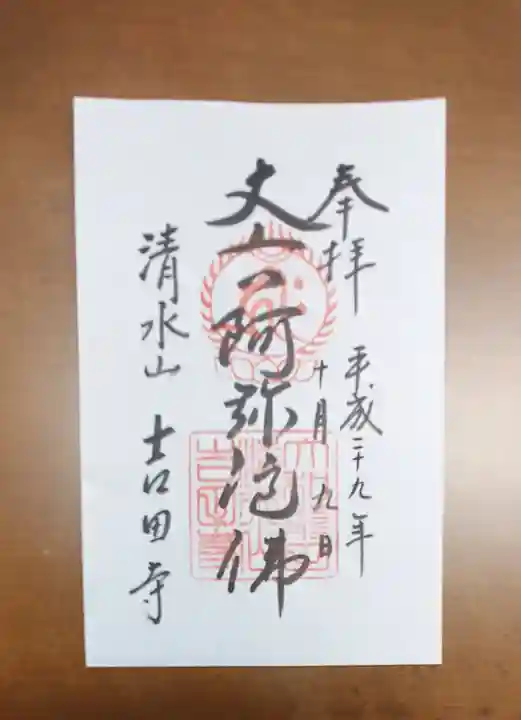 奉拝
平成二十九年
十月九日
丈六阿弥陀佛
清水山 吉田寺